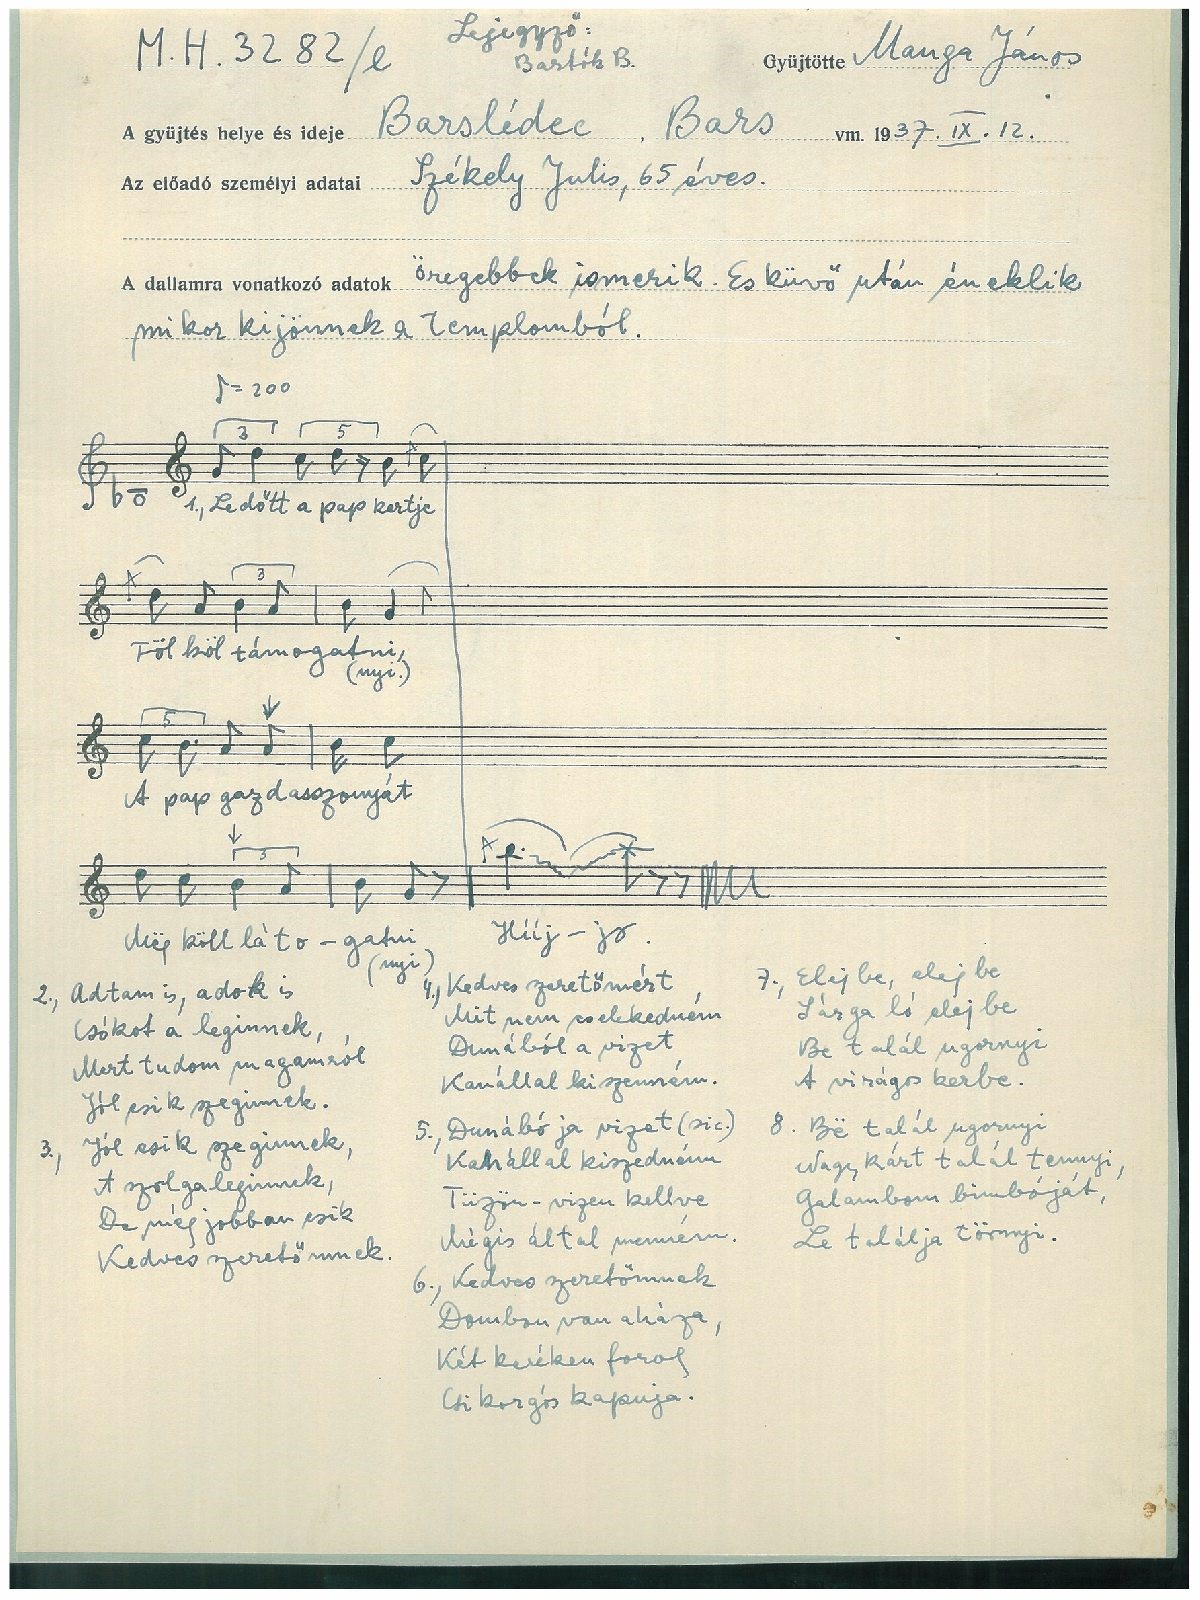 M.H. 3282/e
Lejegyző:
Bartók B.
Gyüjtötte Manga János
A gyüjtés helye és ideje Barslédec, Bars vm. 1937. IX. 12.
Az előadó személyi adatai Székely Julis, 65 éves.
A dallamra vonatkozó adatok öregebbek ismerik. Esküvő után éneklik
mikor kijönnek a templomból.
♪= 200
3 5
1., Ledőtt a pap kertje
3
Föl köl támogatni,
(nyi.)
5
A pap gazdasszonyját
3
Még köll láto - gatni Hííj - jo.
(nyi)
2., Adtam is, adok is
Csókot a leginnek,
Mert tudom magamról
Jól esik szeginnek.
3., Jól esik szeginnek,
A szolgaleginnek,
De még jobban esik
Kedves szeretőmnek.
4., Kedves szeretőmért
Mit nem cselekedném
Dunából a vizet
Kanállal kiszenném.
5., Dunábó ja vizet (sic.)
Kanállal kiszedném
Tüzön-vizen kellve
Mégis által menném.
6., Kedves szeretőmnek
Dombon van aháza,
Két keréken forog
Csikorgós kapuja.
7., Elej be, elej be
Sárga ló elej be
Be talál ugornyi
A virágos kerbe.
8. Bë talál ugornyi
Nagy kárt talál tennyi,
Galambom bimbóját,
Le találja törnyi.